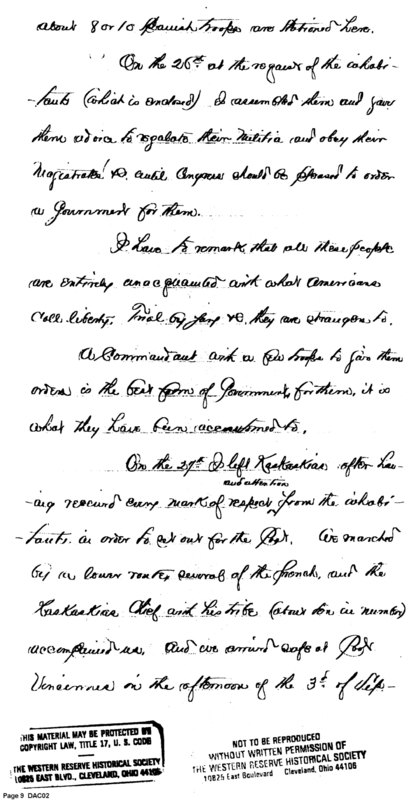 about 8 or 10 Spanish troops are stationed here.
On the 26th at the request of the inhabi-
-tants (which is enclosed) I assembled them and gave
them advice to regulate their Militia and obey their
Magistrates &c. until Congress should be pleased to order
a Government for them.
I have to remark that all these people
are entirely unacquainted with what Americans
call liberty. Trial by jury &c. they are strangers to.
A Commandant with a few troops to give them
orders is the best form of Government, for them, it is
what they have been accustomed to.
On the 27th I left Kaskaskias after hav-
and attention
-ing received every mark of respect from the inhabi-
-tants. in order to set out for the Post. We marched
by a lower route, several of the french, and the
Kaskaskias Chief and his tribe (about ten in number)
accompanied us, and we arrived safe at Post
Vincennes in the afternoon of the 3d. of Sep-
THIS MATERIAL MAY BE PROTECTED BY
COPYRIGHT LAW, TITLE 17, U. S. CODE
THE WESTERN RESERVE HISTORICAL SOCIETY
10825 EAST BLVD., CLEVELAND, OHIO 44106
NOT TO BE REPRODUCED
WITHOUT WRITTEN PERMISSION OF
THE WESTERN RESERVE HISTORICAL SOCIETY
10825 East Boulevard Cleveland, Ohio 44106
Page 9 DAC02